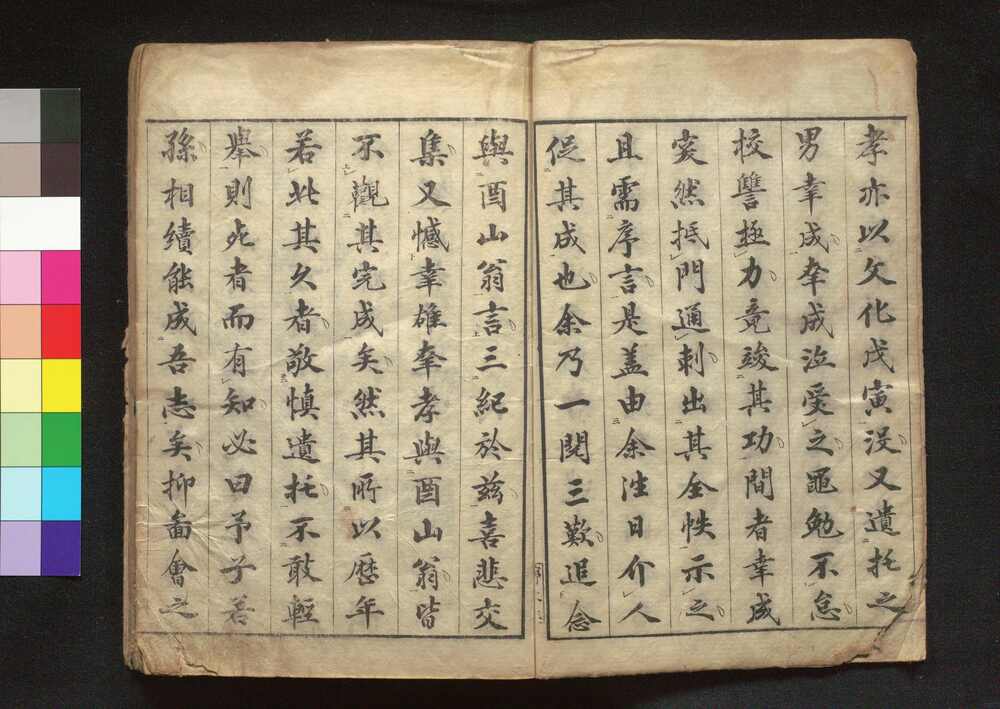 孝亦以文化戊寅没又遺托之
男幸成幸成泣受之黽勉不怠
校讐極力竟竣其功間者幸成
突然抵門通刺出其全帙示之
且需序言是蓋由余往日介人
促其成也余乃一閲三歎追念
與酉山翁言三紀於茲喜悲交
集又憾幸雄幸孝與酉山翁皆
不觀其完成矣然其所以歴年
若此其久者敬慎遺托不敢輕
擧則死者而有知必曰予子若
孫相續能成吾志矣抑圖會之